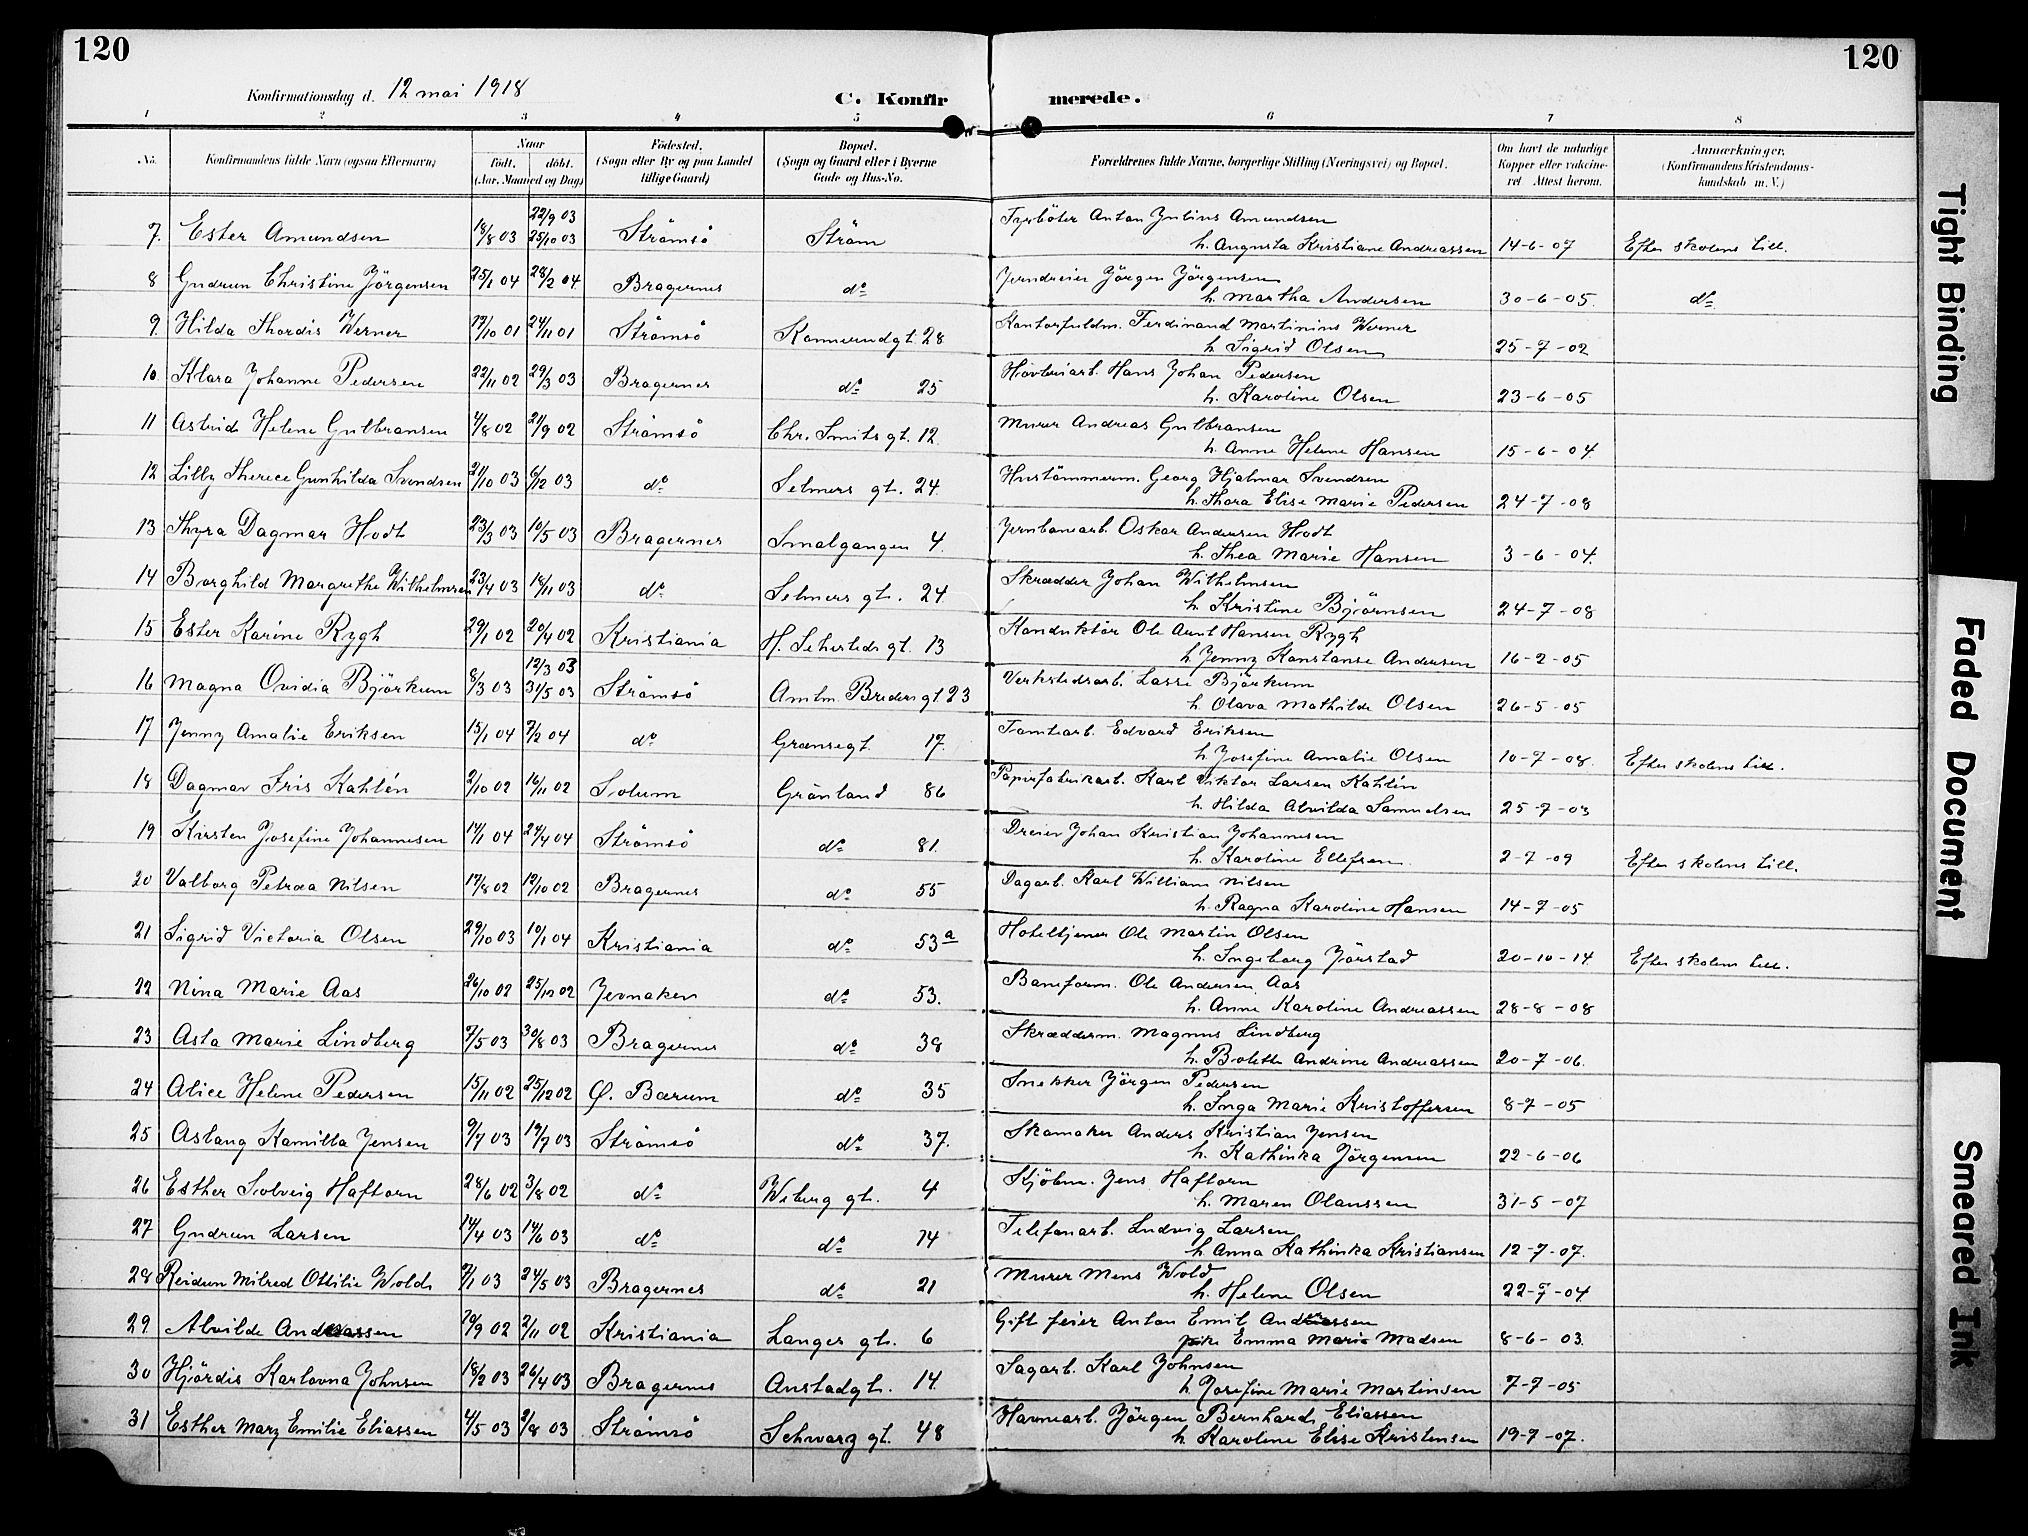 120
120
Konfirmationsdag d. 12 mai 1918
C. Konfirmerede.
1 2 3 4 5 6 7 8
No. Konfirmandens fulde Navn (ogsaa Efternavn) Naar født. døbt. (Aar, Maaned og Dag) Fødested. (Sogn eller By og paa Landet tillige Gaard) Bopæl. (Sogn og Gaard eller i Byerne Gade og Hus-No. Forældrenes fulde Navne, borgerlige Stilling (Næringsvei) og Bopæl. Om havt de naturlige Kopper eller vakcineret. Attest herom. Anmærkninger, (Konfirmandens Kristendomskundskab m. V.)
7. Ester Amundsen 18/8 03 22/9 03 25/10 03 Strömsö Ström Fyrböter Anton Julius Amundsen
h. Augusta Kristiane Andreassen 14-6-07 Efter skolens till.
8 Gudrun Christine Jörgensen 25/1 04 28/2 04. Bragernes do Jerndreier Jörgen Jörgensen
h. Martha Andersen 30-6-05. do
9. Hilda Thordis Werner 19/10 01 24/11 01 Strömsö Konnerudgt. 28 Kontorfuldm. Ferdinand Martinius Werner
h. Sigrid Olsen 25-7-02
10 Klara Johanne Pedersen 22/11 02 29/3 03 Bragernes do 25 Hövleriarb. Hans Johan Pedersen
h. Karoline Olsen 23-6-05
11 Astrid Helene Gulbransen 4/8 02 21/9 02 Strömsö Chr. Smitsgt. 12. Murer Andreas Gulbransen
h. Anne Helene Hansen 15-6-04
12 Lilly Therece Gunhilda Svendsen 21/10 03 6/12 03 do Selmers gt. 24. Hustömmerm. Georg Hjalmar Svendsen
h. Thora Elise Marie Pedersen 24-7-08
13 Thyra Dagmar Hodt 23/3 03 10/5 03 Bragernes Smalgangen 4. Jernbanearb. Oskar Andersen Hodt
h. Thea Marie Hansen 3-6-04.
14 Borghild Margrethe Wilhelmsen 23/4 03 18/11 03 do Selmers gt. 24 Skrædder Johan Wilhelmsen
h. Kristine Bjiörnsen 24-7-08
15 Ester Karine Rygh 29/1 02 20/4 02 Kristiania H. Sehesteds gt. 13 Konduktör Ole Aunt Hansen Rygh
h. Jenny Konstanse Andersen 16-2-05
16 Magna Ovidia Björkum 8/3 03 12/3 03 31/5 03 Strömsö Amtm. Bredersgt 23 Verkstedsarb. Lasse Björkum
h. Olava Mathilde Olsen 26-5-05
17 Jenny Amalie Eriksen 15/1 04 7/2 04 do Grænsegt. 17. Tomtearb. Edvard Eriksen
h. Josefine Amalie Olsen 10-7-08. Efter skolens till.
18 Dagmar Iris Kahlén 2/10 02 16/11 02 Solum Grönland 86 Papirfabrikarb. Karl Viktor Larsen Kahlén
h. Hilda Alvilda Samuelsen 25-7-03
19 Kirsten Josefine Johannesen 14/1 04 24/4 04 Strömsö do 81. Dreier Johan Kristian Johannesen
h. Karoline Ellefsen 2-7-09 Efter skolens till.
20 Valborg Petræa Nilsen 17/8 02 12/10 02 Bragernes do 55 Dagarb. Karl William Nilsen
h. Ragna Karoline Hansen 14-7-05
21 Sigrid Victoria Olsen 29/10 03 10/1 04 Kristiania do 53a Hoteltjener Ole Martin Olsen
h. Ingeborg Jörstad 20-10-14 Efter skolens till.
22 Nina Marie Aas 26/10 02 25/12 02 Jevnaker do 53. Baneform. Ole Andersen Aas
h. Anne Karoline Andreassen 28-8-08
23 Asta Marie Lindberg 7/5 03 30/8 03 Bragernes do 38 Skrædderm. Magnus Lindberg
h. Bolette Andrine Andreassen 20-7-06.
24 Alice Helene Pedersen 15/11 02 25/12 02 Ø. Bærum do 35 Snekker Jörgen Pedersen
h. Inga Marie Kristoffersen 8-7-05
25 Aslaug Kamilla Jensen 9/7 03 19/7 03 Strömsö do 37. Skomaker Anders Kristian Jensen
h. Kathinka Jörgensen 22-6-06
26 Esther Solveig Haftorn 28/6 02 3/8 02 do Wiberg gt. 4 Kjöbm. Jens Haftorn
h. Maren Olaussen 31-5-07
27 Gudrun Larsen 14/4 03 14/6 03 do do 14 Telefonarb. Ludvig Larsen
h. Anna Kathinka Kristiansen 12-7-07.
28 Reidun Milred Ottilie Wold 2/1 03 24/5 03 Bragernes do 21 Murer Mens Wold
h. Helene Olsen 22-7-04
29 Alvilde Andreassen 19/9 02 2/11 02 Kristiania Langes gt. 6 Gift feier Anton Emil Andreassen
pike Emma Marie Madsen 8-6-03.
30 Hjördis Karlovna Johnsen 18/2 03 26/4 03 Bragernes Anstadgt. 14. Sagarb. Karl Johnsen
h. Josefine Marie Martinsen 7-7-05
31 Esther Mary Emilie Eliassen 4/5 03 2/8 03 Strömsö Schwarz gt. 48 Havnearb. Jörgen Bernhard Eliassen
h. Karoline Elise Kristensen 19-7-07.
Tight Binding
Faded Document
Smeared Ink